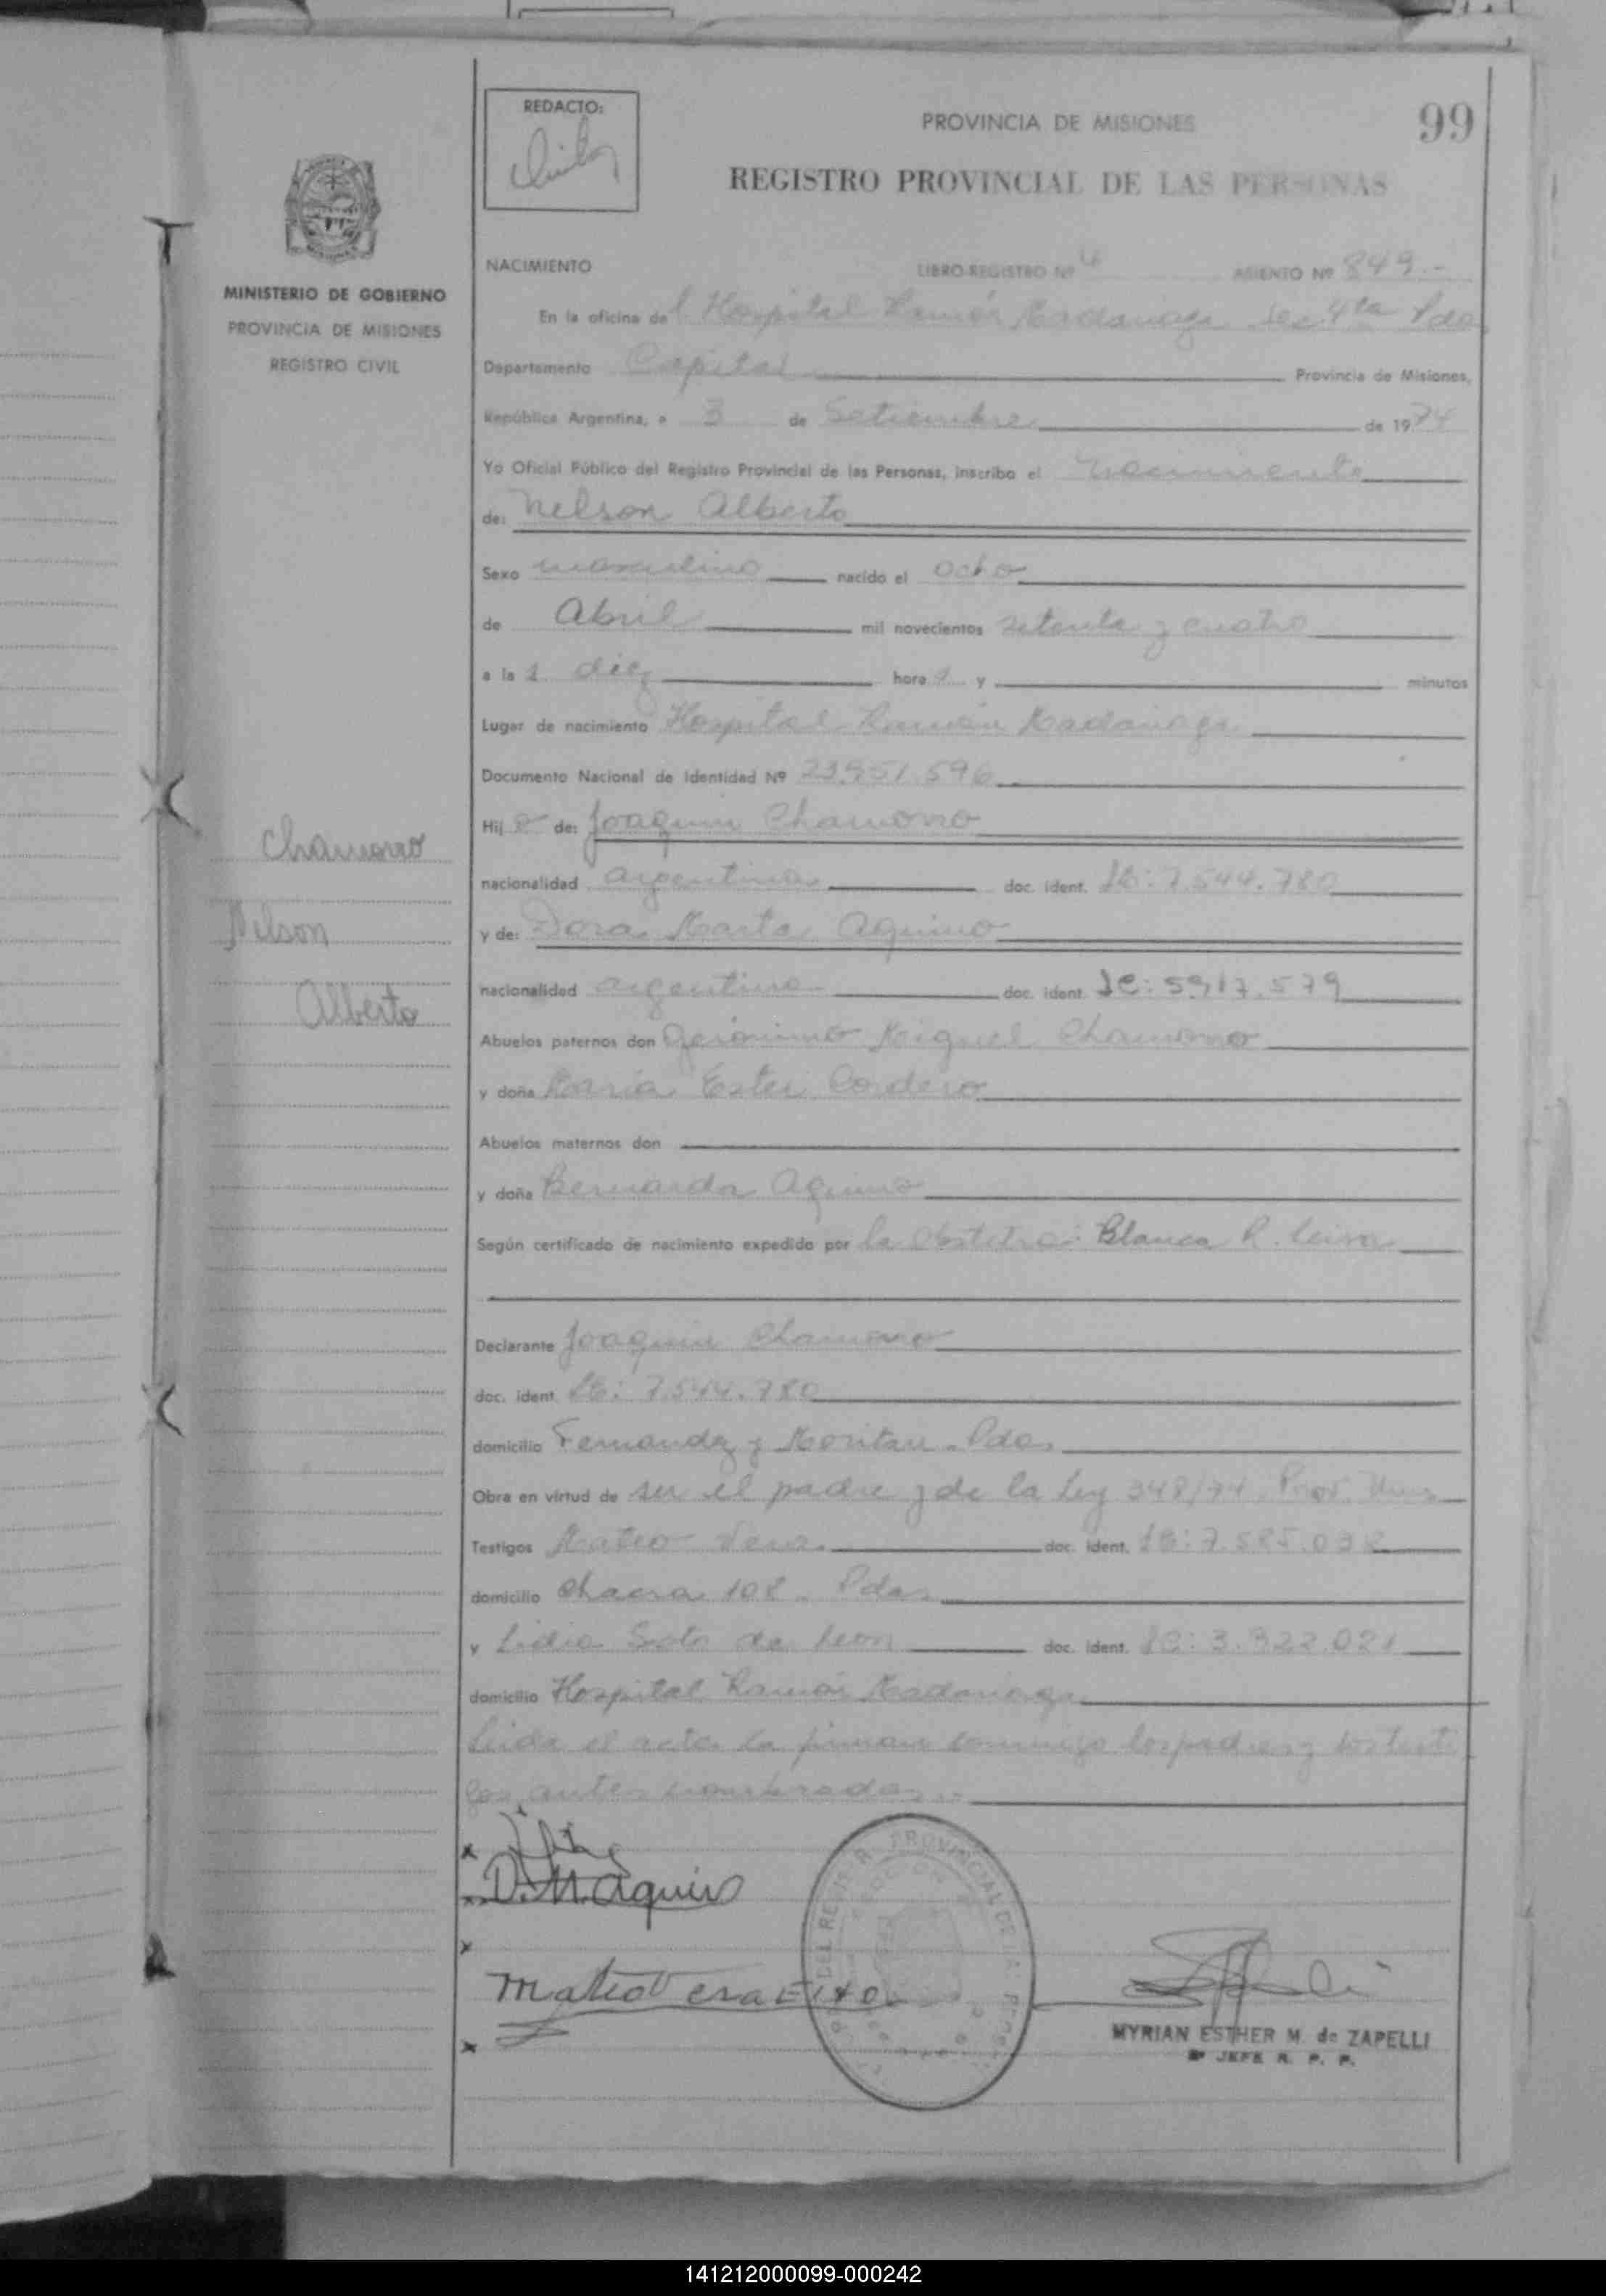 REDACTO:
PROVINCIA DE MISIONES
99
REGISTRO PROVINCIAL DE LAS PERSONAS
MINISTERIO DE GOBIERNO
PROVINCIA DE MISIONES
REGISTRO CIVIL
NACIMIENTO LIBRO-REGISTRO Nº 4 ASIENTO Nº 849.-
En la oficina del Hospital Ramón Madariaga Sec. 4ta Pdas
Departamento Capital Provincia de Misiones,
República Argentina, a 3 de Setiembre de 1974
Yo Oficial Público del Registro Provincial de las Personas, inscribo el nacimiento
de: Nelson Alberto
Sexo masculino nacido el ocho
de Abril mil novecientos setenta y cuatro
a la s diez hora s y minutos
Lugar de nacimiento Hospital Ramón Madariaga
Documento Nacional de Identidad Nº 23.951.596
Hij o de: Joaquin Chamorro
nacionalidad argentina doc. ident. LE: 7.544.780
y de: Dora Marta Aquino
nacionalidad argentina doc. ident. LC: 5.917.579
Abuelos paternos don Gerónimo Miguel Chamorro
y doña María Ester Cordero
Abuelos maternos don
y doña Bernarda Aquino
Según certificado de nacimiento expedido por la obstetra: Blanca R. Leiva
Declarante Joaquin Chamorro
doc. ident. LE: 7.544.780
domicilio Fernandez y Moritan - Pdas
Obra en virtud de ser el padre y de la Ley 348/74. Prov. Mnes
Testigos Mateo Vera doc. ident. LE: 7.585.038
domicilio Chacra 108 - Pdas
y Lidia Soto de Leon doc. ident. LC: 3.922.021
domicilio Hospital Ramón Madariaga
Leida el acta la firman conmigo los padres y los testi
gos antes nombrados.-
Chamorro
Nelson
Alberto
D.M. Aquino
Mateo Vera
MYRIAN ESTHER M. de ZAPELLI
JEFE R. P. P.
141212000099-000242